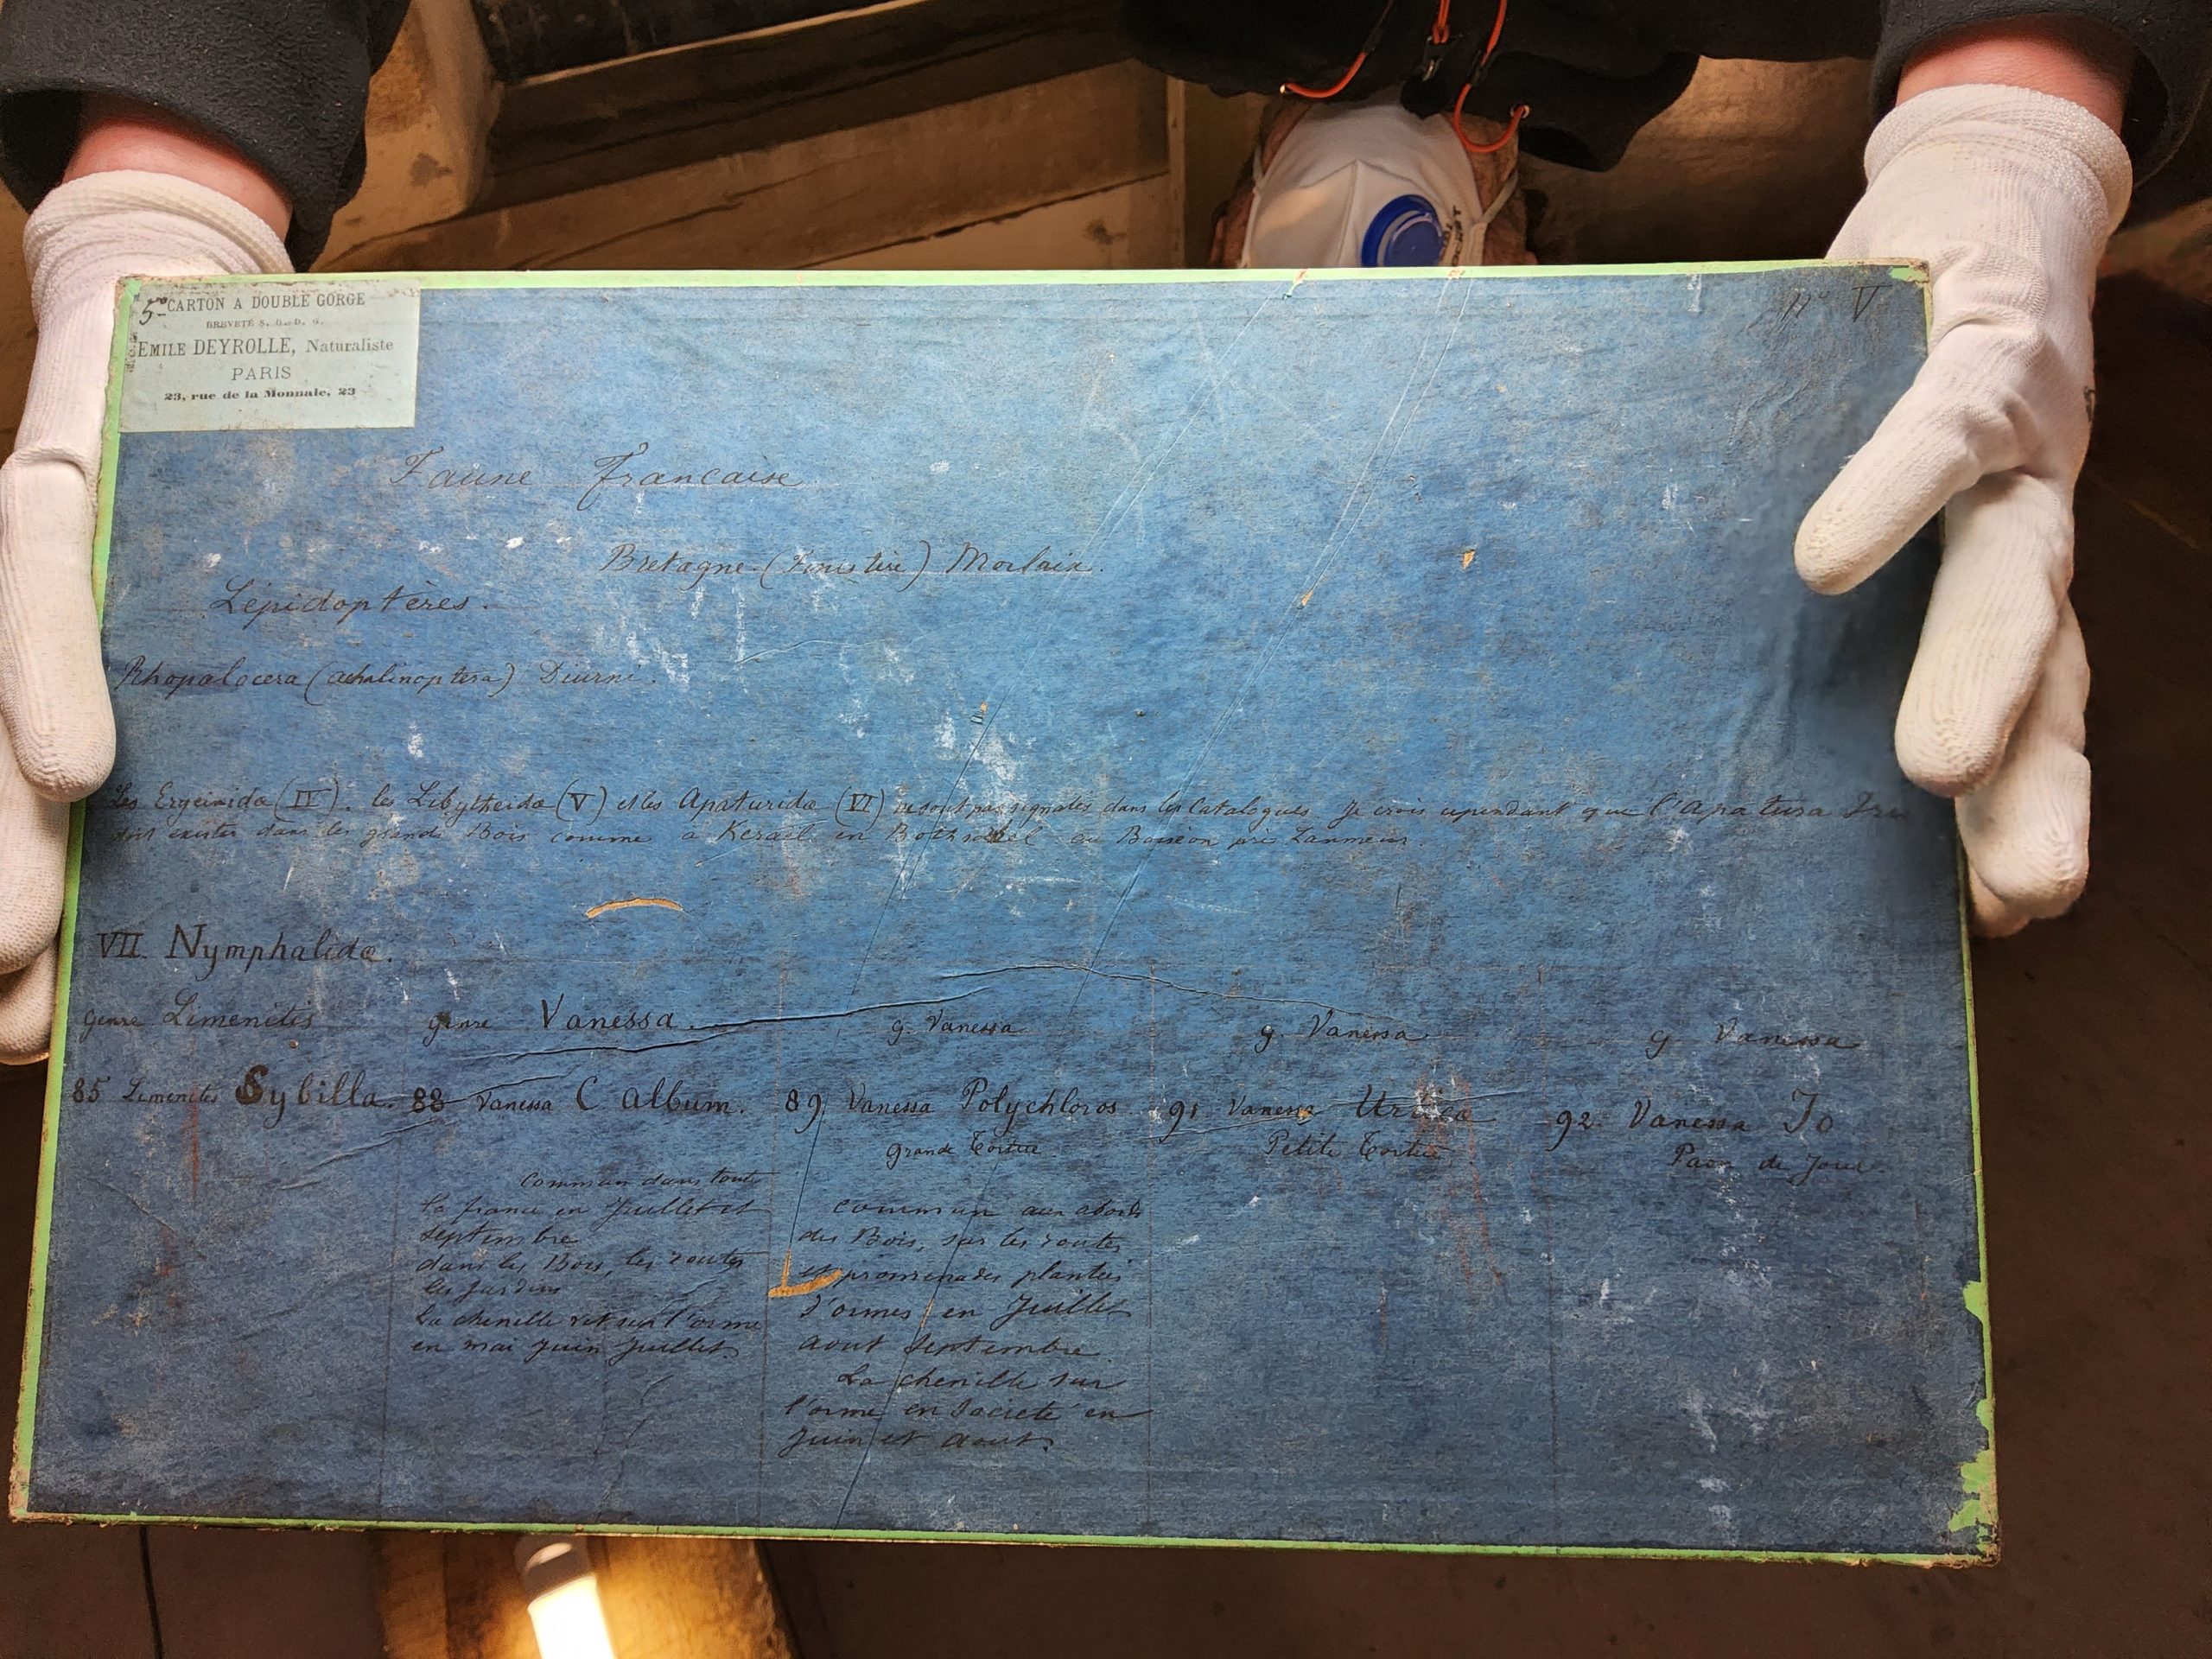 5-
CARTON A DOUBLE GORGE
BREVETÉ S. G. D. G.
EMILE DEYROLLE, Naturaliste
PARIS
23, rue de la Monnaie, 23
n° V
Faune française
Bretagne (Finistère) Morlaix.
Lépidoptères.
Rhopalocera (achalinoptera) Diurni.
Les Erycinidæ (IV). les Libytheidæ (V) et les Apaturidæ (VI) ne sont pas signalés dans les Catalogues je crois cependant que l'apatura
doit exister dans les grands Bois comme a en au près Lanmeur.
VII. Nymphalidæ.
genre Limenitis
85 Limenites Sybilla.
genre Vanessa.
88 Vanessa C album.
commun dans toute
la france en Juillet et
septembre
dans les Bois, les routes
les Jardins
La chenille vit sur l'orme
en mai juin juillet.
g. Vanessa
89 Vanessa Polychloros
grande tortue
commun aux abords
des Bois, sur les routes
et promenades plantées
d'ormes en Juillet
aout septembre.
La chenille sur
l'orme en société en
juin et aout.
g. Vanessa
91 Vanessa Urticæ
Petite tortue
g. Vanessa
92 Vanessa Io
Paon de Jour